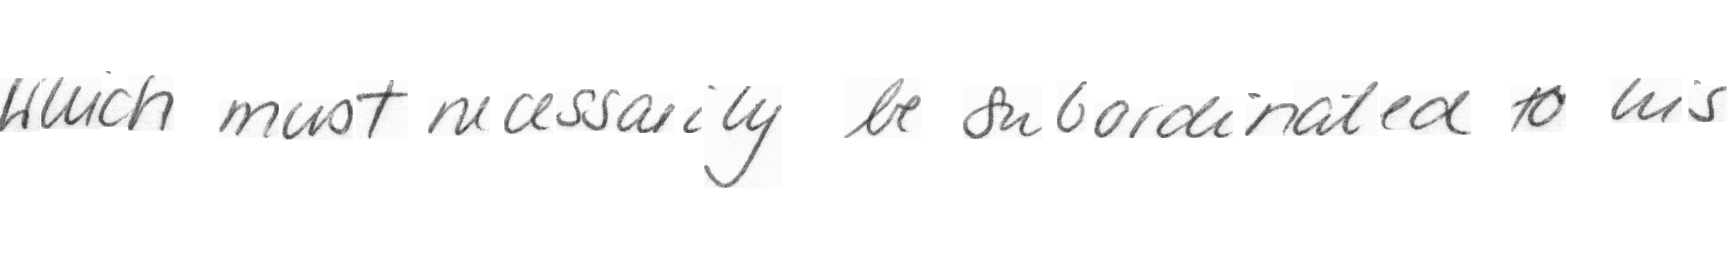 which must necessarily be subordinated to his